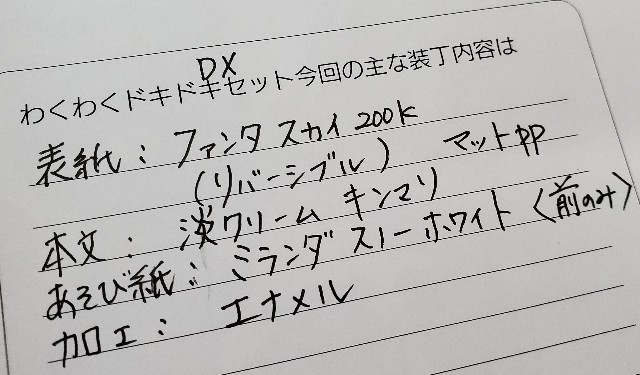 DX
わくわくドキドキセット今回の主な装丁内容は
表紙：ファンタス スカイ 200k
(リバーシブル) マットPP
本文：淡クリーム キンマリ
あそび紙：ミランダ スノーホワイト〈前のみ〉
加工：エナメル